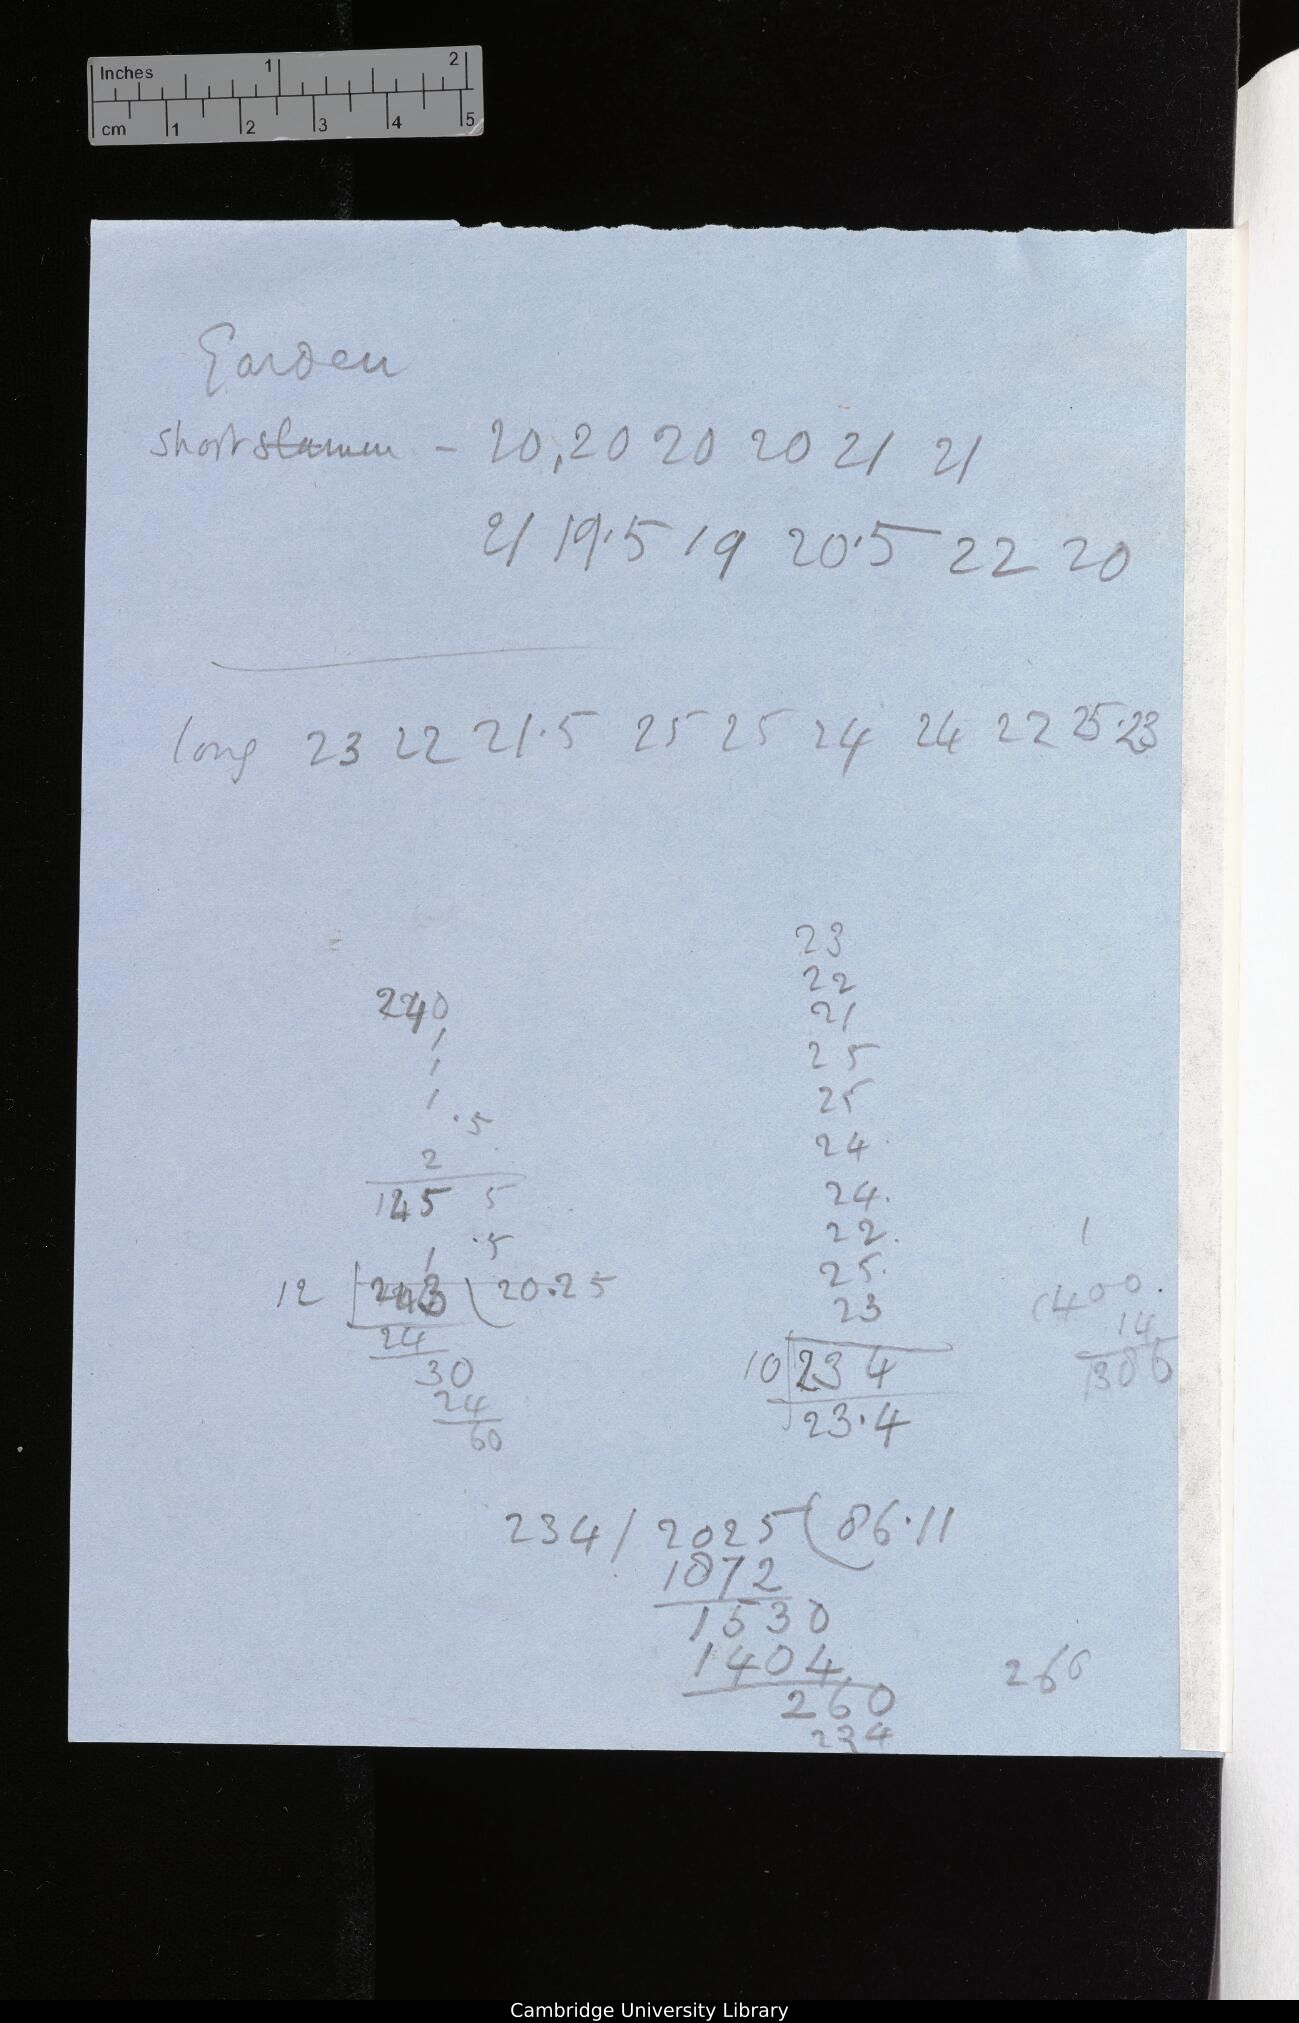 Inches 1 2
cm 1 2 3 4 5
Garden
Short stamen - 20, 20 20 20 21 21
21 19·5 19 20·5 22 20
long 23 22 21·5 25 25 24 24 22 25·23
240
1
1
1
·5
2
245 5
1 ·5
12 243 20.25
24
30
24
60
23
22
21
25
25
24
24.
22.
25.
23
10 234
23·4
1
400.
14
386
234 / 2025 ( 86·11
1872
1530
1404
260
234
266
Cambridge University Library